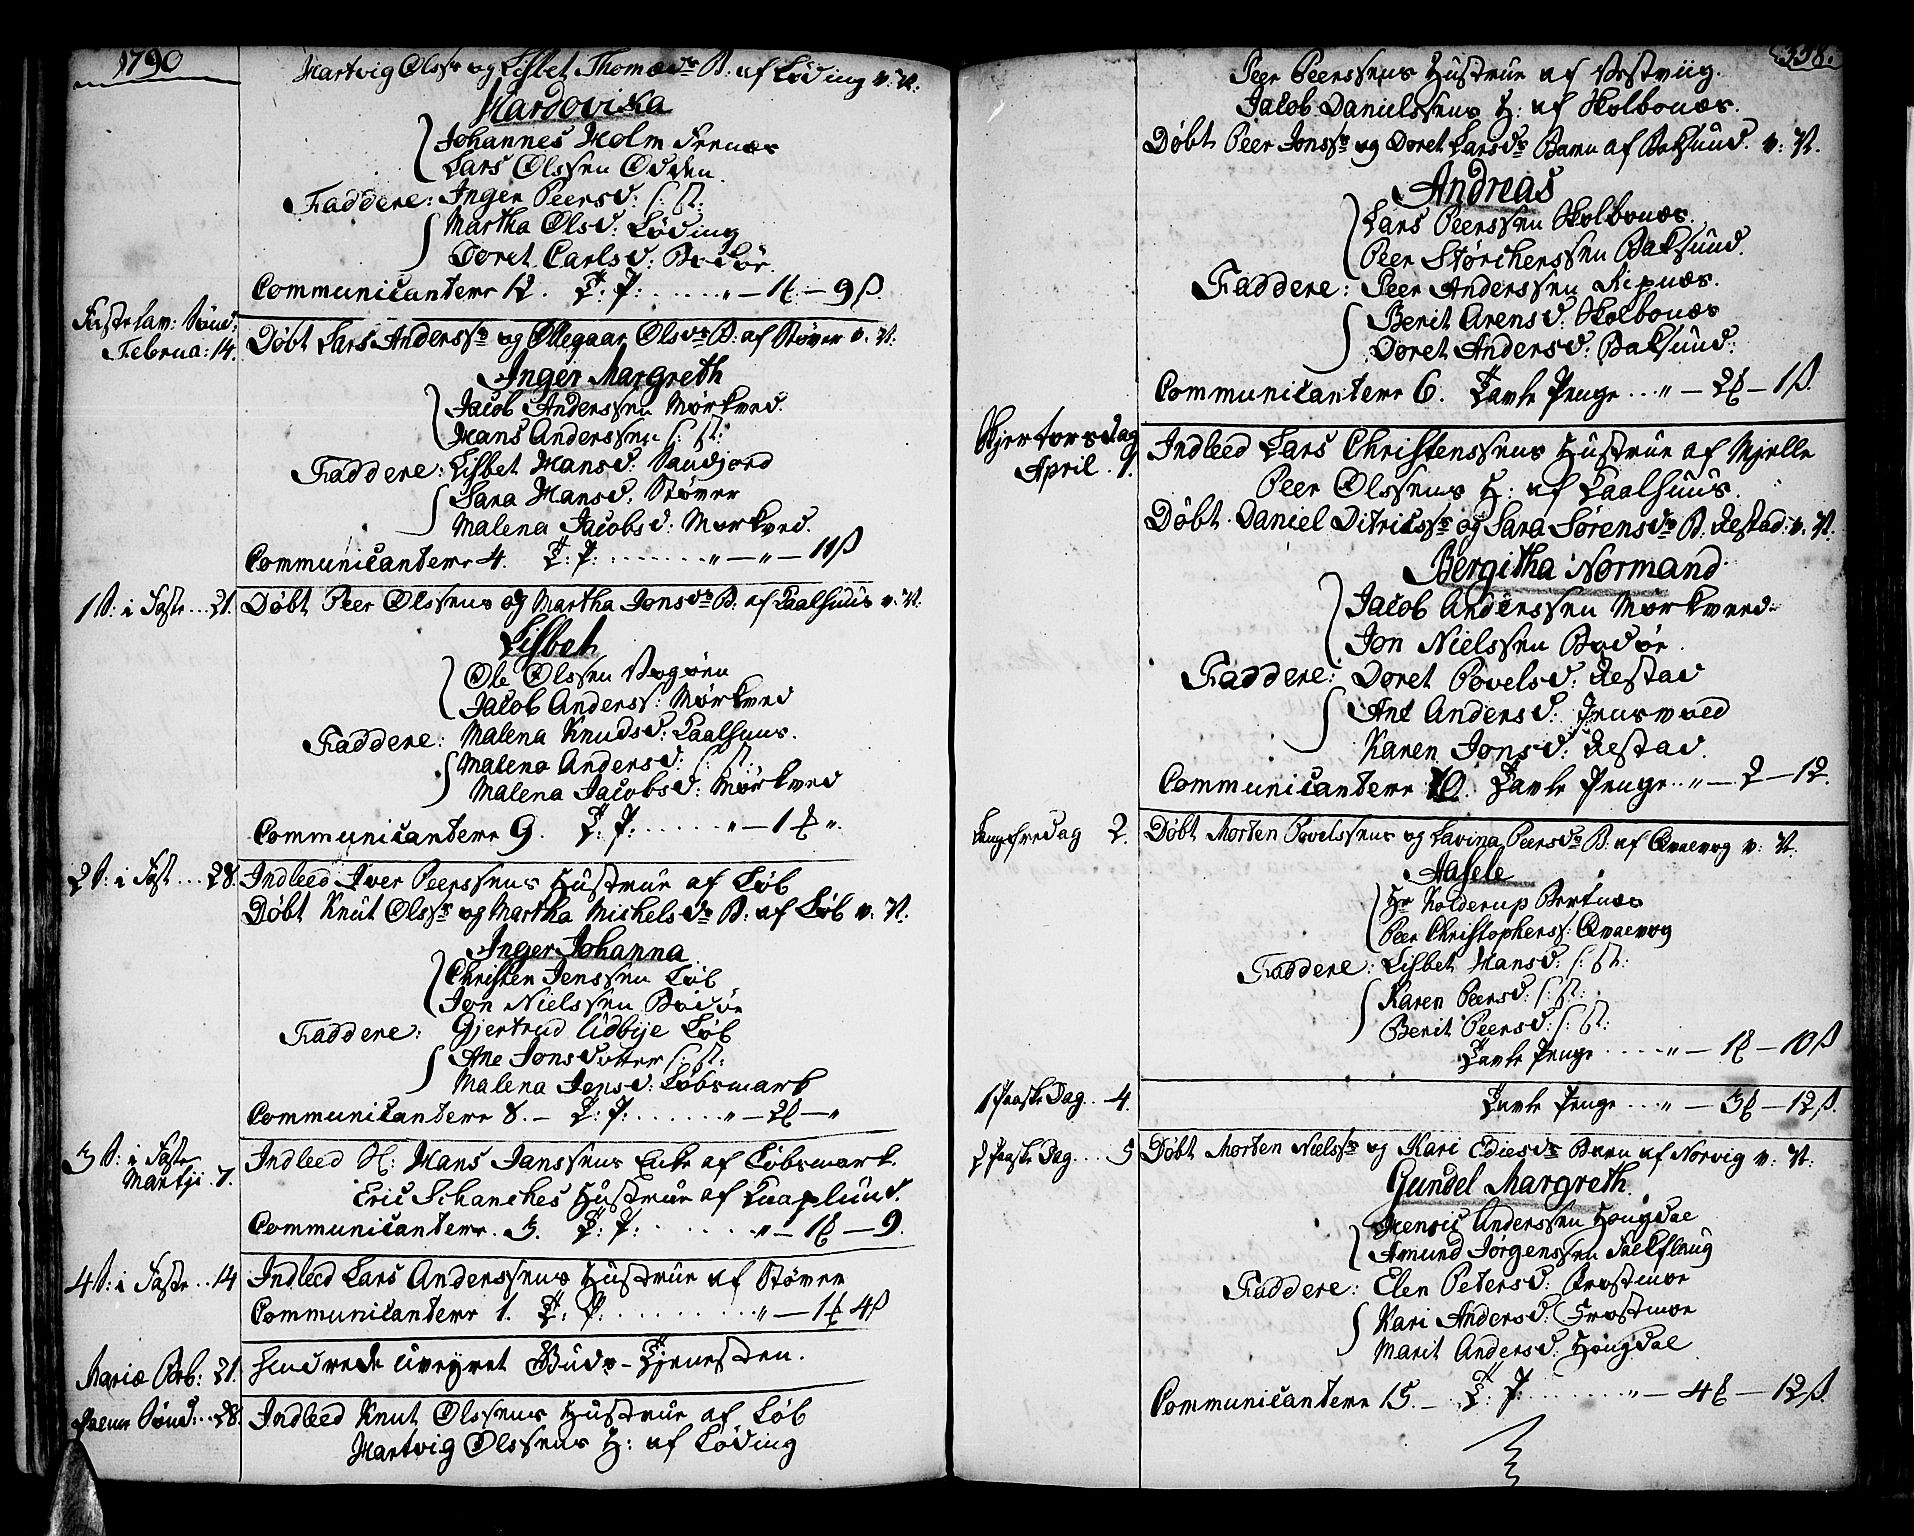 1790
Hartvig Olss: og Lisbet Thomæd: B: af Løding n: N.
Hardovika
Johannes Holm Fernæs
Lars Olssen Odden
Faddere: Inger Peersd: s: st:
Martha Olsd: Løding
Doret Carlsd: Bodøe
Communicantere 12. T: P: ... " — 1 — 9 ß.
Fastelav: Sønd:
Februa: 14. Døbt Lars Anderss: og Ellegaar Olsd: B: af Støver n: N:
Inger Margreth
Jacob Anderssen Mørkved
Hans Anderssen s: st:
Faddere: Lisbet Hansd: Naudjord
Sara Hansd: Støver
Malena Jacobsd: Mørkved.
Communicantere 4. T: P: ... " — " — 11 ß
1 S: i Faste ... 21. Døbt Peer Olssens og Martha Jonsd: B: af Laalhuus n: N.
Lisbet
Ole Olssen Vogøen
Jacob Anderss: Mørkved
Faddere: Malena Knudsd: Laalhuus.
Malena Andersd: s: st:
Malena Jacobsd: Mørkved
Communicantere 9. T: P: ... " — 1 "
2 S: i Fast ... 28. Indleed Iver Peerssens Hustrue af Løb
Døbt Knut Olss: og Martha Michelsd: B: af Løb n: N.
Inger Johanna
Christen Jenssen Løb
Jon Nielssen Bodøe
Faddere: Gjertrud Lidbye Løb
Ane Jonsdotter s: st:
Malena Jonsd: Løbsmark
Communicantere 8. — T: P: ... " — 2 — "
3 S: i Faste
Martji 7. Indleed Sl: Hans Janssens Enke af Løbsmark.
Eric Schanches Hustrue af Knaplund.
Communicantere. 3. T: P: ... " — 1 — 9.
4 S: i Faste .. 14 Indleed Lars Anderssens Hustrue af Støver
Communicantere 1. T: P: ... " — 1 4 ß
Mariæ Beb: 21. hindrede Uveyret Guds-Tjenesten.
Palme Sønd: .. 28. Indleed Knut Olssens Hustrue af Løb
Hartvig Olssens H: af Løding
338.
Peer Peerssens Hustrue af Vestviig.
Jacob Danielssens H: af Skolbones.
Døbt Peer Jonss: og Doret Larsd: Barn af Baksund. n: N.
Andreas
Lars Peerssen Skolbones
Peer Størcherssen Baksund.
Faddere: Peer Anderssen Ripnæs.
Berit Arensd: Skolbones
Doret Andersd: Baksund:
Communicantere 6. Tavle Penge ... " — 2 — 1 ß.
Skjertorsdag
April. 1. Indleed Lars Christenssens Hustrue af Mjelle
Peer Olssens H: af Laalhuus.
Døbt Daniel Ditricss: og Sara Sørensd: B: Restad: n: N.
Bergitha Normand
Jacob Anderssen Mørkved:
Jon Nielssen Bodøe.
Faddere: Doret Povelsd: Restad
Ane Andersd: Jensvold
Karen Jonsd: Restad
Communicantere 10. Tavle Penge .. " — 2 — 12.
Langfredag 2. Døbt Morten Povelssens og Lavina Peersd: B: af Qvalvog n: N.
Aasele
Hr Kolderup Bertnæs
Peer Christophers: Qvalvog
Faddere: Lisbet Hansd: s: st:
Karen Peersd: s: st:
Berit Peersd: s: st:
Tavle Penge ... " — 1 — 10 ß
1 Paaske Dag .. 4. Tavle Penge ... " — 3 — 12 ß.
2 Paaske Dag ... 5 Døbt Morten Nielss: og Kari Ediesd: Barn af Norvig n: N:
Gundel Margreth.
Hensic Anderssen Hougdal
Amund Jørgenssen Falkflaug
Faddere: Elen Petersd: Frostmoe
Kari Andersd: Frostmoe
Marit Andersd: Hougdal
Communicantere 15. — T: P: ... " — 4 — 12 ß.